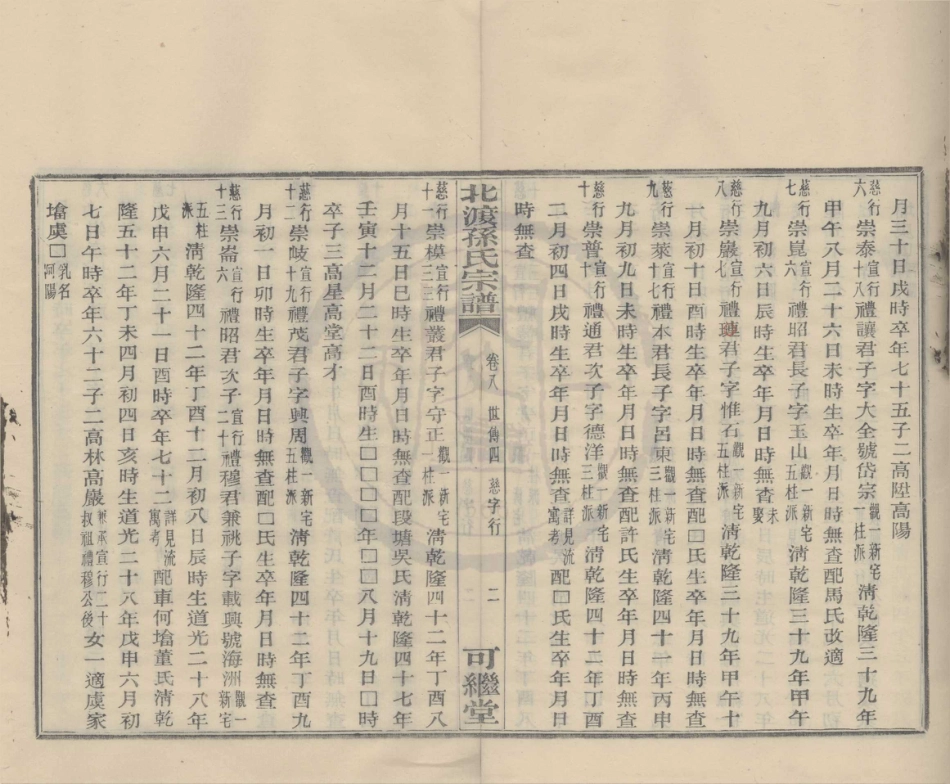 月三十日戌時卒年七十五子二高陞高陽
慈行六崇泰宣行十八禮讓君子字大全號岱宗觀一新宅一柱派淸乾隆三十九年
甲午八月二十六日未時生卒年月日時無查配馬氏改適
慈行七崇崑宣行六禮昭君長子字玉山觀一新宅五柱派淸乾隆三十九年甲午
九月初六日辰時生卒年月日時無查未娶
慈行八崇巖宣行七禮璉君子字惟石觀一新宅五柱派淸乾隆三十九年甲午十
一月初十日酉時生卒年月日時無查配□氏生卒年月日時無查
慈行九崇萊宣行七禮本君長子字呂東觀一新宅三柱派淸乾隆四十一年丙申
九月初九日未時生卒年月日時無查配許氏生卒年月日時無查
慈行十崇普宣行十禮通君次子字德洋觀一新宅三柱派淸乾隆四十二年丁酉
二月初四日戌時生卒年月日時無查詳見流寓考配□氏生卒年月日
時無查
北渡孫氏宗譜 卷八 世傳四 慈字行 二 可繼堂
慈行十一崇模宣行三三禮叢君子字守正觀一新宅一柱派淸乾隆四十二年丁酉八
月十五日巳時生卒年月日時無查配段塘吳氏淸乾隆四十七年
壬寅十二月二十二日酉時生□□□□年□□八月十九日□時
卒子三高星高堂高才
慈行十二崇岐宣行十九禮茂君子字興周觀一新宅五柱派淸乾隆四十二年丁酉九
月初一日卯時生卒年月日時無查配□氏生卒年月日時無查
慈行十三崇崙宣行六禮昭君次子宣行二十禮穆君兼祧子字載興號海洲觀一新宅
五柱派淸乾隆四十二年丁酉十二月初八日辰時生道光二十八年
戊申六月二十一日酉時卒年七十二詳見流寓考配車何墖董氏淸乾
隆五十二年丁未四月初四日亥時生道光二十八年戊申六月初
七日午時卒年六十二子二高林高嚴兼承宣行二十叔祖禮穆公後女一適虞家
墖虞□乳名阿陽